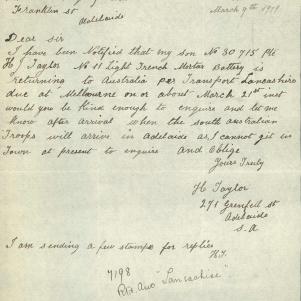 Franklin st
Adelaide
March 9th 1919
Dear Sir
I have been Notified that my son No 30715 Pte
H J Taylor No 11 Light Trench Mortar Battery is
returning to Australia per Transport Lancashire
due at Melbourne on or about March 21st inst
would you be kind enough to enquire and let me
know after arrival when the south australian
Troops will arrive in Adelaide as I cannot get in
Town at present to enquire and Oblige
Yours Truly
H Taylor
271 Grenfell st
Adelaide
S.A
I am sending a few stamps for replies
H.T.
7198
"Lancashire"